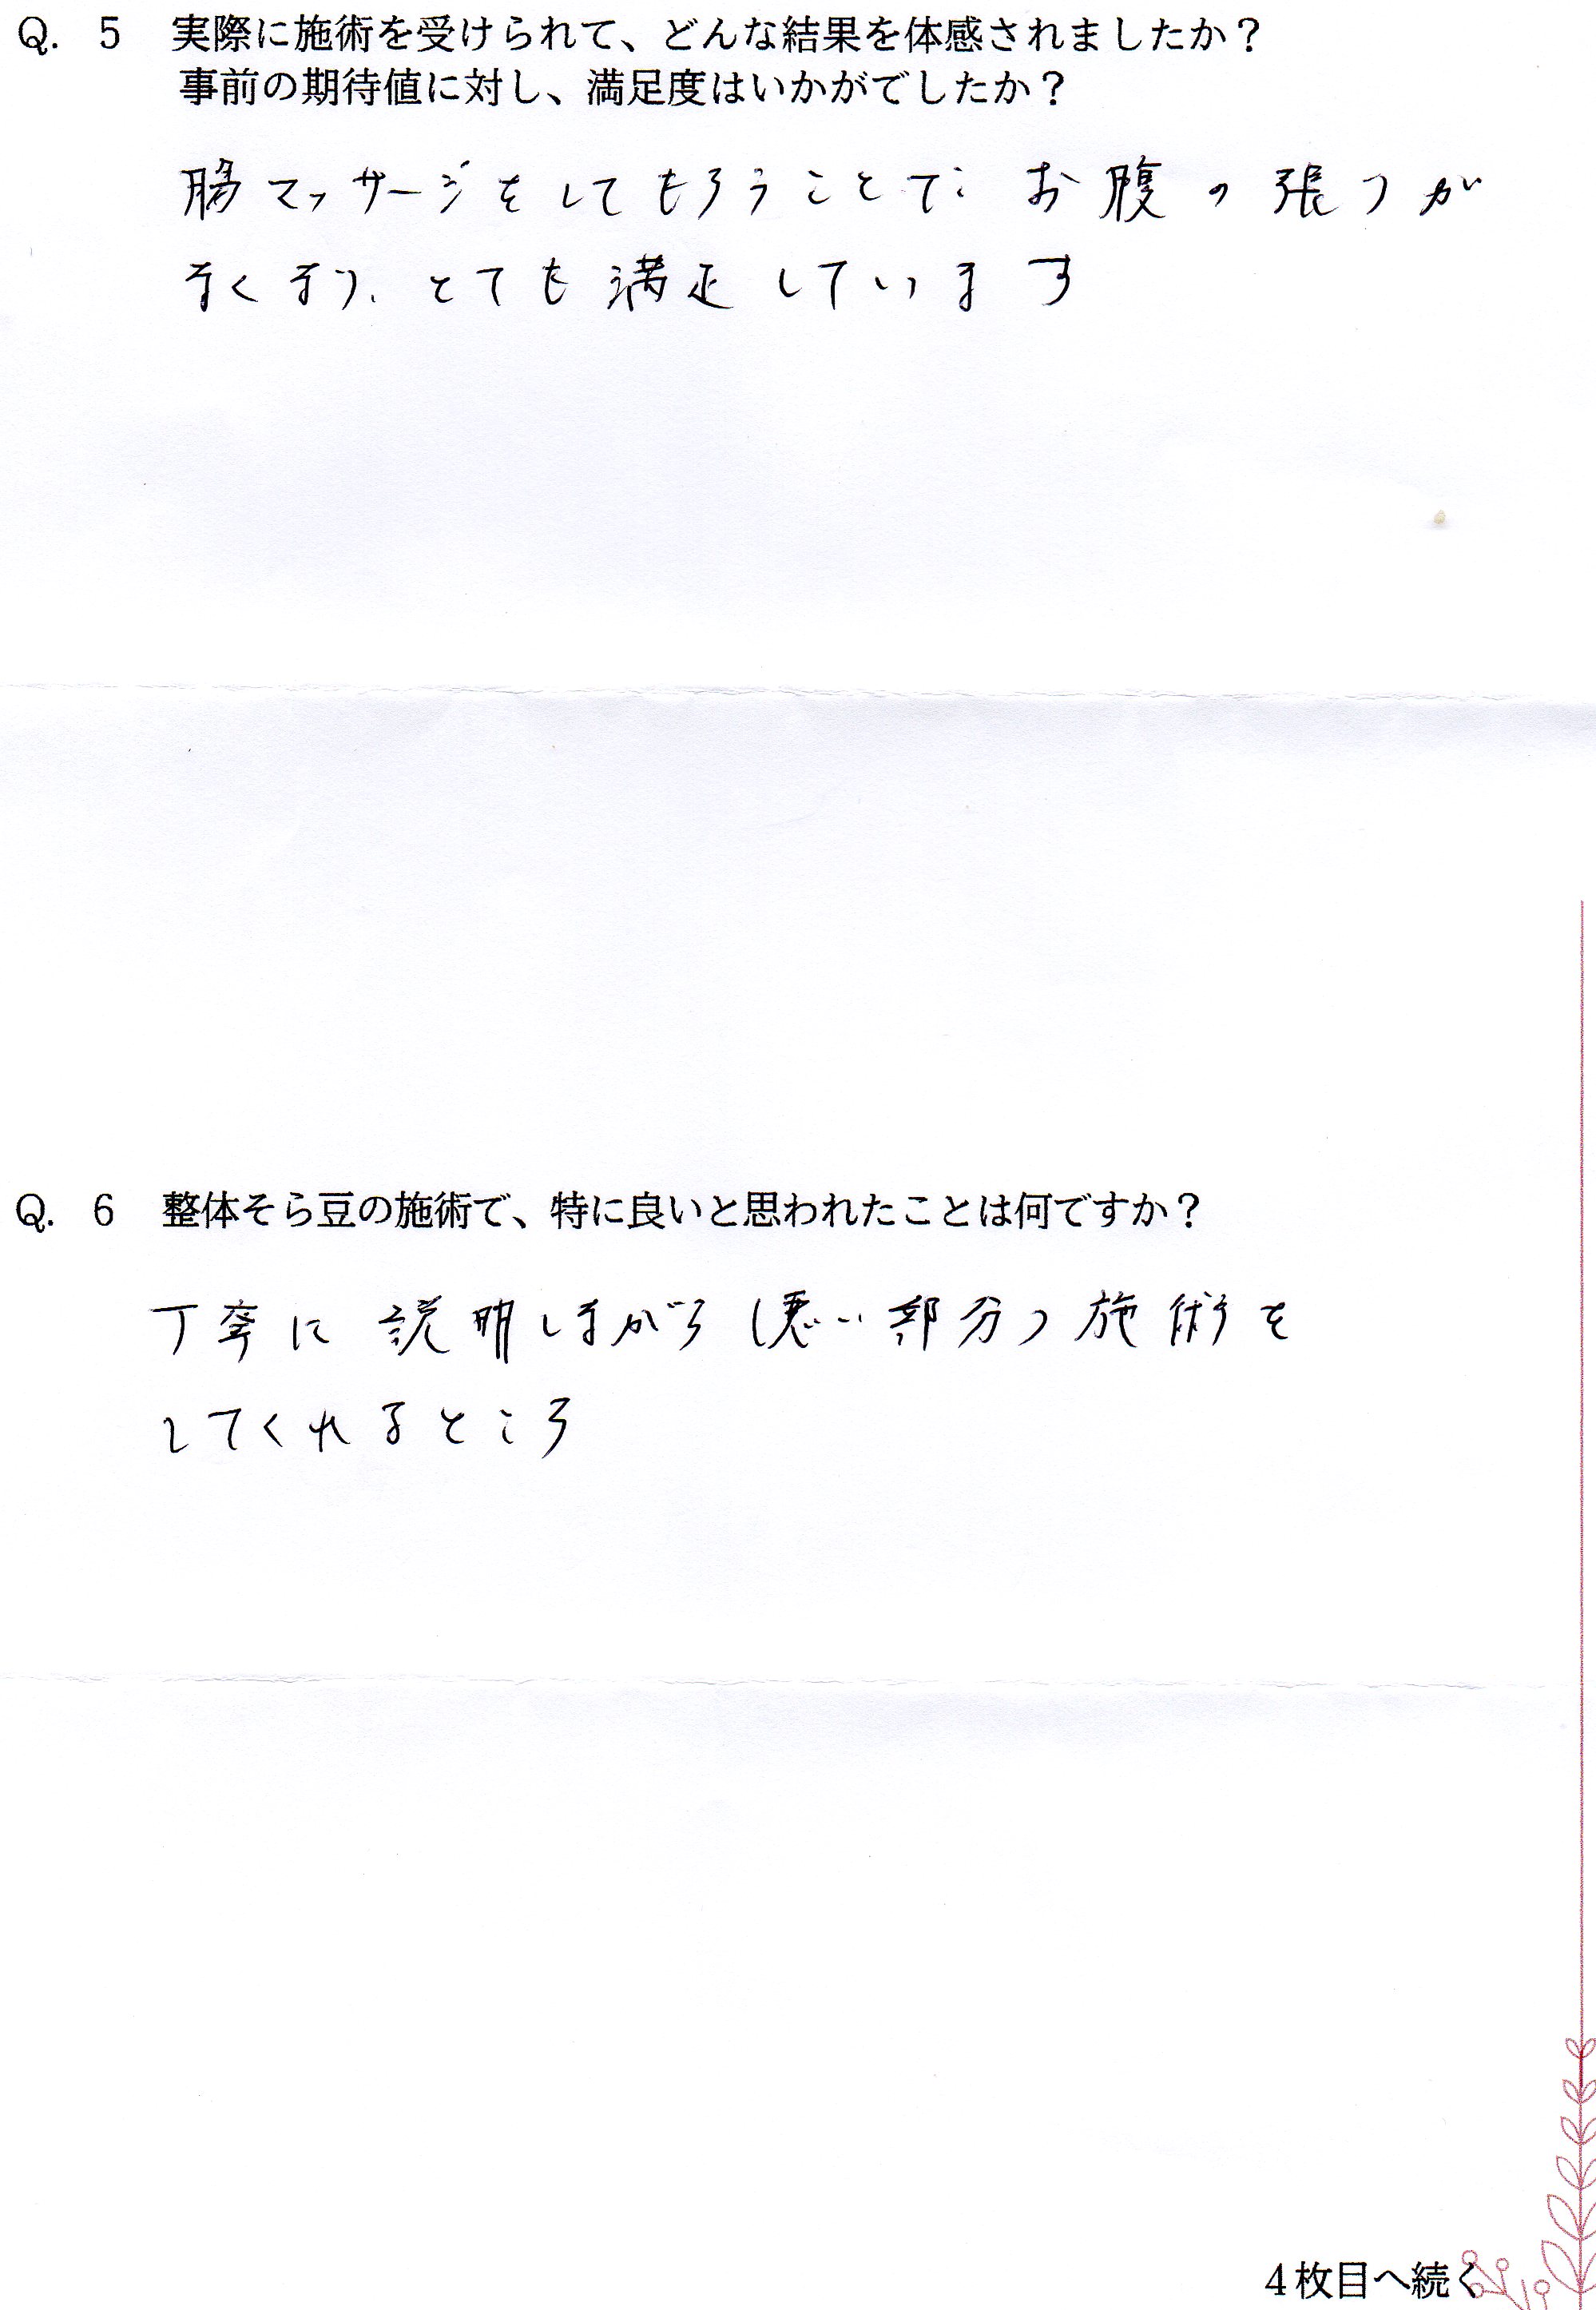 Q. 5 実際に施術を受けられて、どんな結果を体感されましたか？
事前の期待値に対し、満足度はいかがでしたか？
腸マッサージをしてもらうことで お腹の張りが
なくなり、とても満足しています
Q. 6 整体そら豆の施術で、特に良いと思われたことは何ですか？
丁寧に説明しながら 悪い部分の施術を
してくれるところ
4枚目へ続く